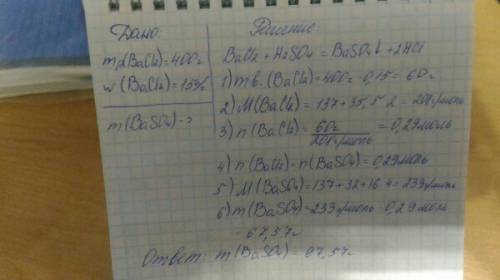 Дано:
mр(BaCl2)=400г
w(BaCl2)=15%
m(BaSO4)-?
Решение:
BaCl2+H2SO4=BaSO4↓+2HCl
1) mв.(BaCl2)=400г·0,15=60г
2) M(BaCl2)=137+35,5·2=208г/моль
3) n(BaCl2)=60г/208г/моль=0,29моль
4) n(BaCl2)=n(BaSO4)=0,29моль
5) M(BaSO4)=137+32+16·4=233г/моль
6) m(BaSO4)=233г/моль·0,29моль
=67,57г
Ответ: m(BaSO4)=67,57г